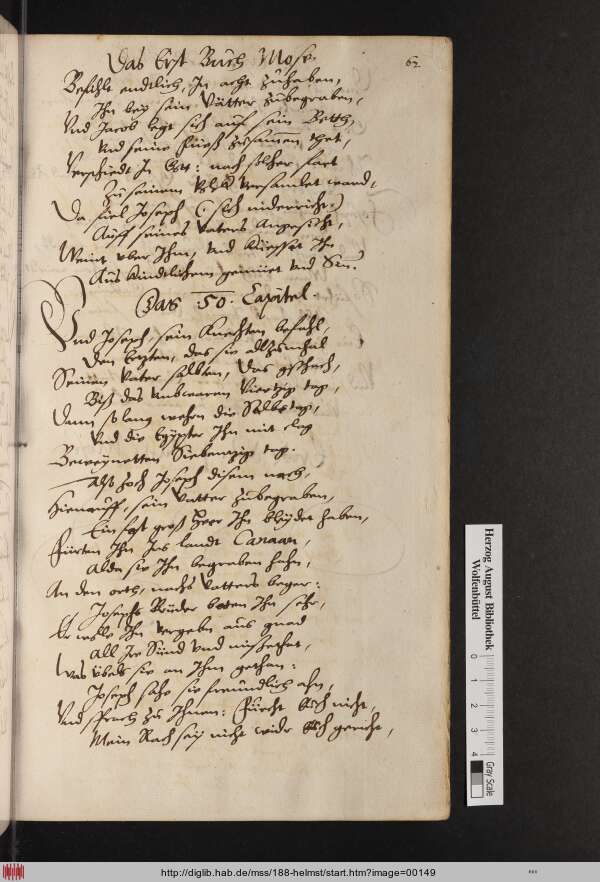 Das Erst Buch Mose.
62
Befihle endtlich, In acht zuhaben,
Ihn bey sein Vätter zubegraben,
Und Jacob legt sich auff sein Betth,
Und seine Füeß zusammen thet,
Verschiedt In Gott: nach solcher fart
Zu seinem Volck versamlet ward,
Da fiel Joseph (: sich niderricht:)
Auff seines Vaters Angesicht,
Weint uber Ihm, Und Küesset Ihn
Aus Kindtlichem gemüet Und Sin.
Das 50. Capitel
Und Joseph, sein Knechten befahl,
Den Ertzten, das sie allzumhal
Seinen Vater salbten, Das gschach,
Biß das umbwaren Viertzig tag,
Dann so lang wehrn die Salbtag,
Und die Egypter Ihn mit clag
Beweynetten Siebentzig tag.
Alß zoch Joseph disem nach,
Hienauff, sein Vatter zubegraben,
Ein fast groß Heer Ihn bleydet haben,
Fürten Ihn Ins landt Canaan,
Alda sie Ihn begraben hahn,
An den orth, nachs Vatters beger:
Josephs Brüder baten Ihn sehr,
Er wolle Ihn vergeben aus gnad
All Ire Sünd Und missethat,
Was übels sie an Ihm gethan:
Joseph sahe sie freundtlich ahn,
Und sprach zu Ihnen: Fürcht Euch nicht,
Mein Rach sey nicht wider Euch gericht,
Herzog August Bibliothek
Wolfenbüttel
0 1 2 3 4
Gray Scale
http://diglib.hab.de/mss/188-helmst/start.htm?image=00149